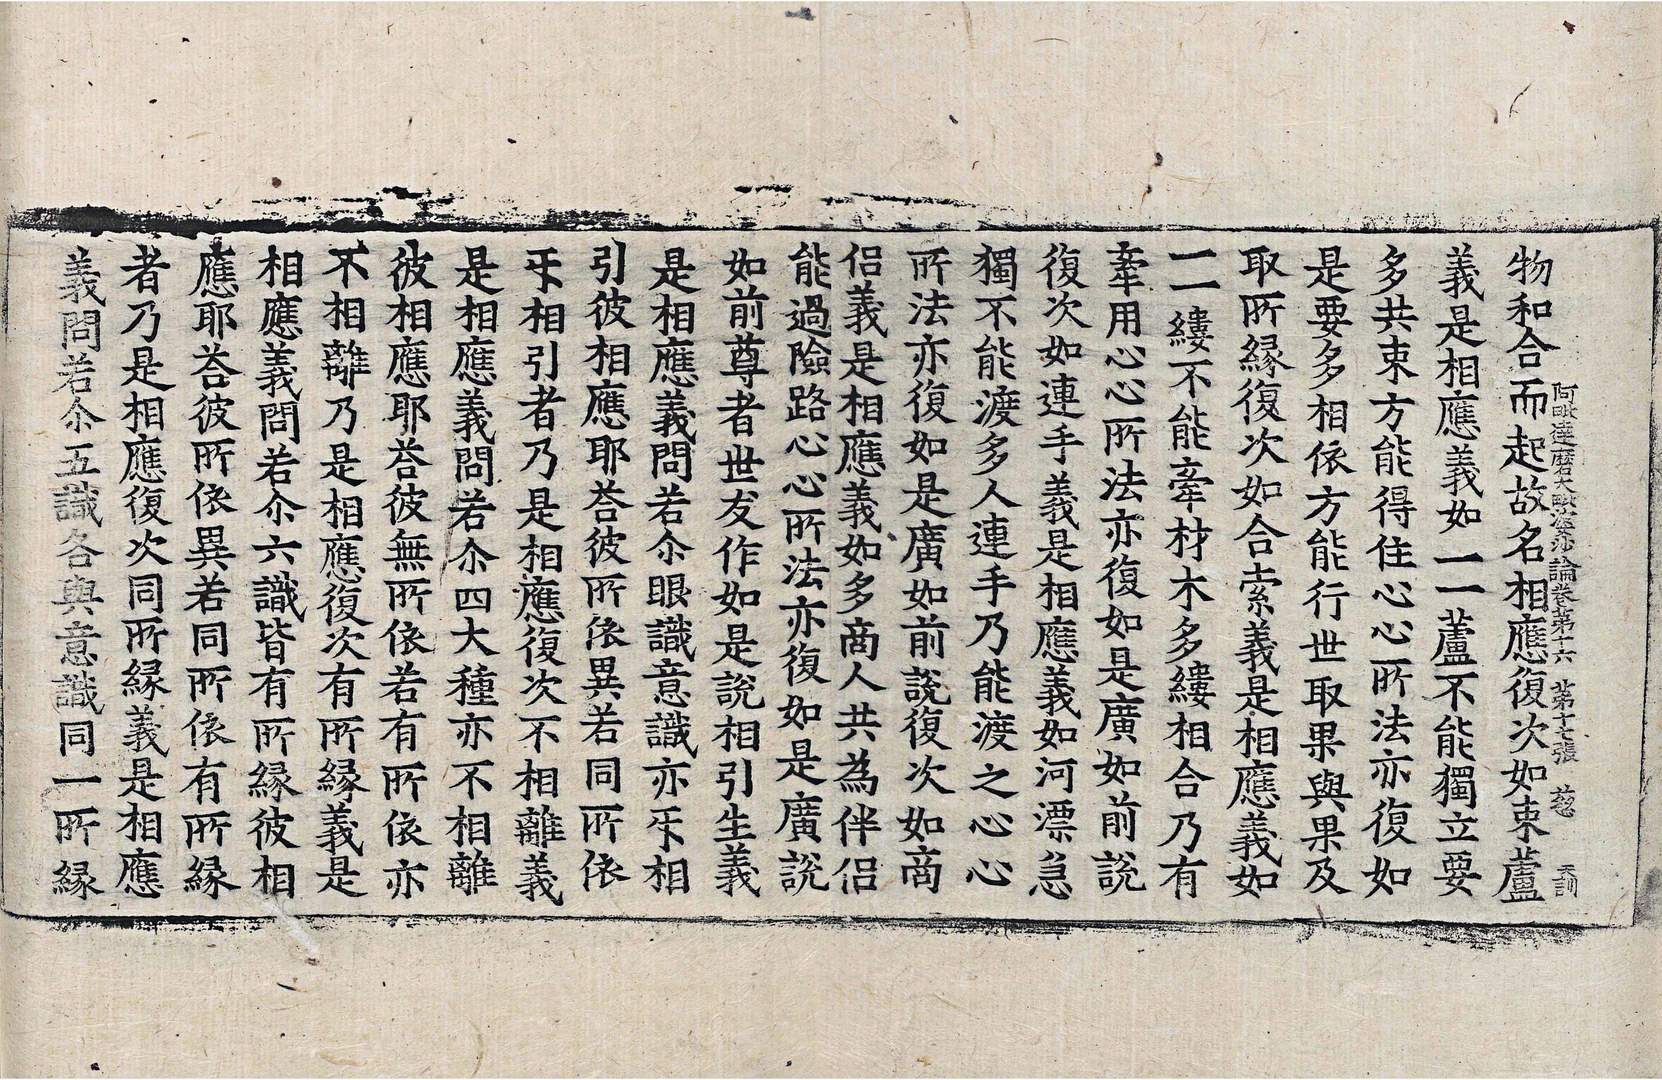 阿毗達磨大毗婆沙論卷第十六 第十七張 慈 天訓
物和合而起故名相應復次如束蘆
義是相應義如一一蘆不能獨立要
多共束方能得住心心所法亦復如
是要多相依方能行世取果與果及
取所緣復次如合索義是相應義如
一一縷不能牽材木多縷相合乃有
牽用心心所法亦復如是廣如前說
復次如連手義是相應義如河漂急
獨不能渡多人連手乃能渡之心心
所法亦復如是廣如前說復次如商
侶義是相應義如多商人共為伴侶
能過險路心心所法亦復如是廣說
如前尊者世友作如是說相引生義
是相應義問若尒眼識意識亦㸦相
引彼相應耶荅彼所依異若同所依
㸦相引者乃是相應復次不相離義
是相應義問若尒四大種亦不相離
彼相應耶荅彼無所依若有所依亦
不相離乃是相應復次有所緣義是
相應義問若尒六識皆有所緣彼相
應耶荅彼所依異若同所依有所緣
者乃是相應復次同所緣義是相應
義問若尒五識各與意識同一所緣